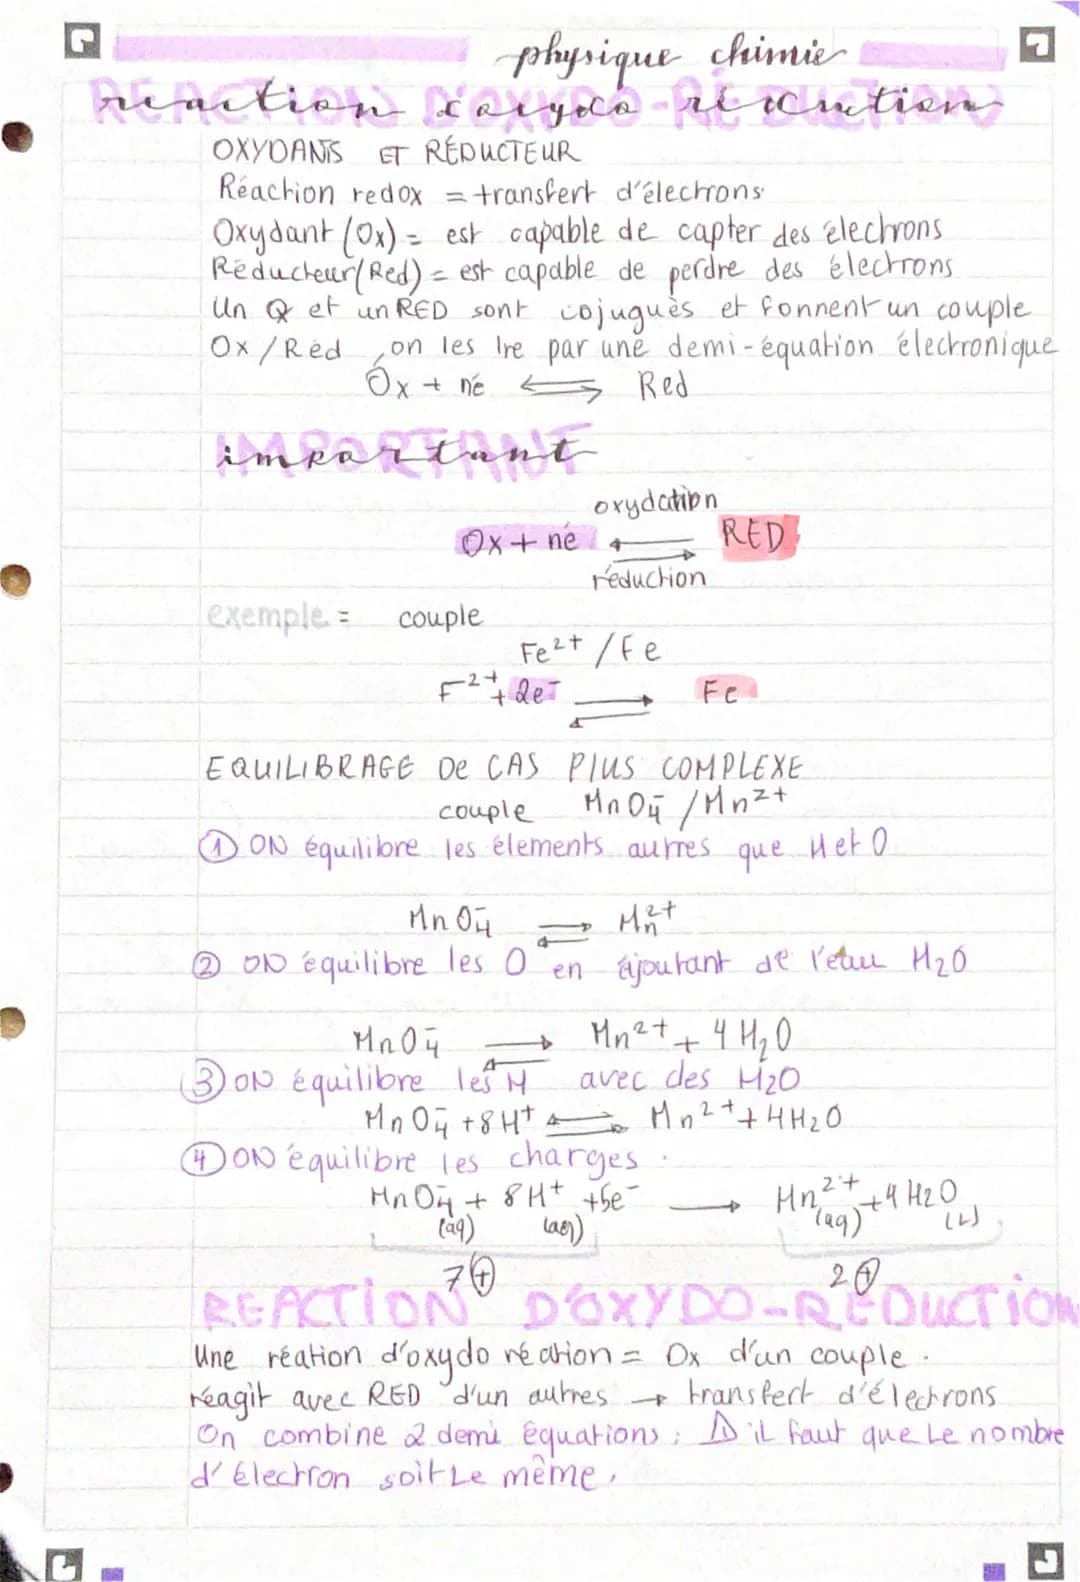 physique chimie
REACTION D'OXYDO-REDUCTION
OXYDANTS ET RÉDUCTEUR
Réaction redox = transfert d'électrons.
Oxydant (Ox) = est capable de capter des électrons
Réducteur (Red) = est capable de perdre des électrons
Un Ox et un RED sont cojugués et fonnent un couple
Ox / Réd, on les lre par une demi-équation électronique
Ox + né ⇌ Red
IMPORTANT
oxydation
Ox + né ⇌ RED
réduction
exemple = couple
Fe²⁺ / Fe
F²⁺ + 2e⁻ ⇌ Fe
EQUILIBRAGE De CAS PlUS COMPLEXE
couple MnO₄⁻ / Mn²⁺
① ON équilibre les élements autres que H et O
MnO₄⁻ ⇌ Mn²⁺
② ON équilibre les O en ajoutant de l'eau H₂O
MnO₄⁻ ⇌ Mn²⁺ + 4 H₂O
③ ON équilibre les H avec des H₂O
MnO₄⁻ + 8H⁺ ⇌ Mn²⁺ + 4H₂O
④ ON équilibre les charges.
MnO₄⁻ + 8H⁺ + 5e⁻ → Mn²⁺ + 4 H₂O
(aq) (aq) (aq) (L)
7⊕ 2⊕
REACTION D'OXYDO-REDUCTION
Une réation d'oxydo réation = Ox d'un couple.
réagit avec RED d'un autres → transfert d'électrons
On combine 2 demi équations ; ⚠ il faut que Le nombre
d'électron soit Le même.